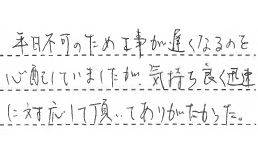 平日不可のため工事が遅くなるのを
心配していましたが、気持ち良く迅速
に対応して頂いてありがたかった。